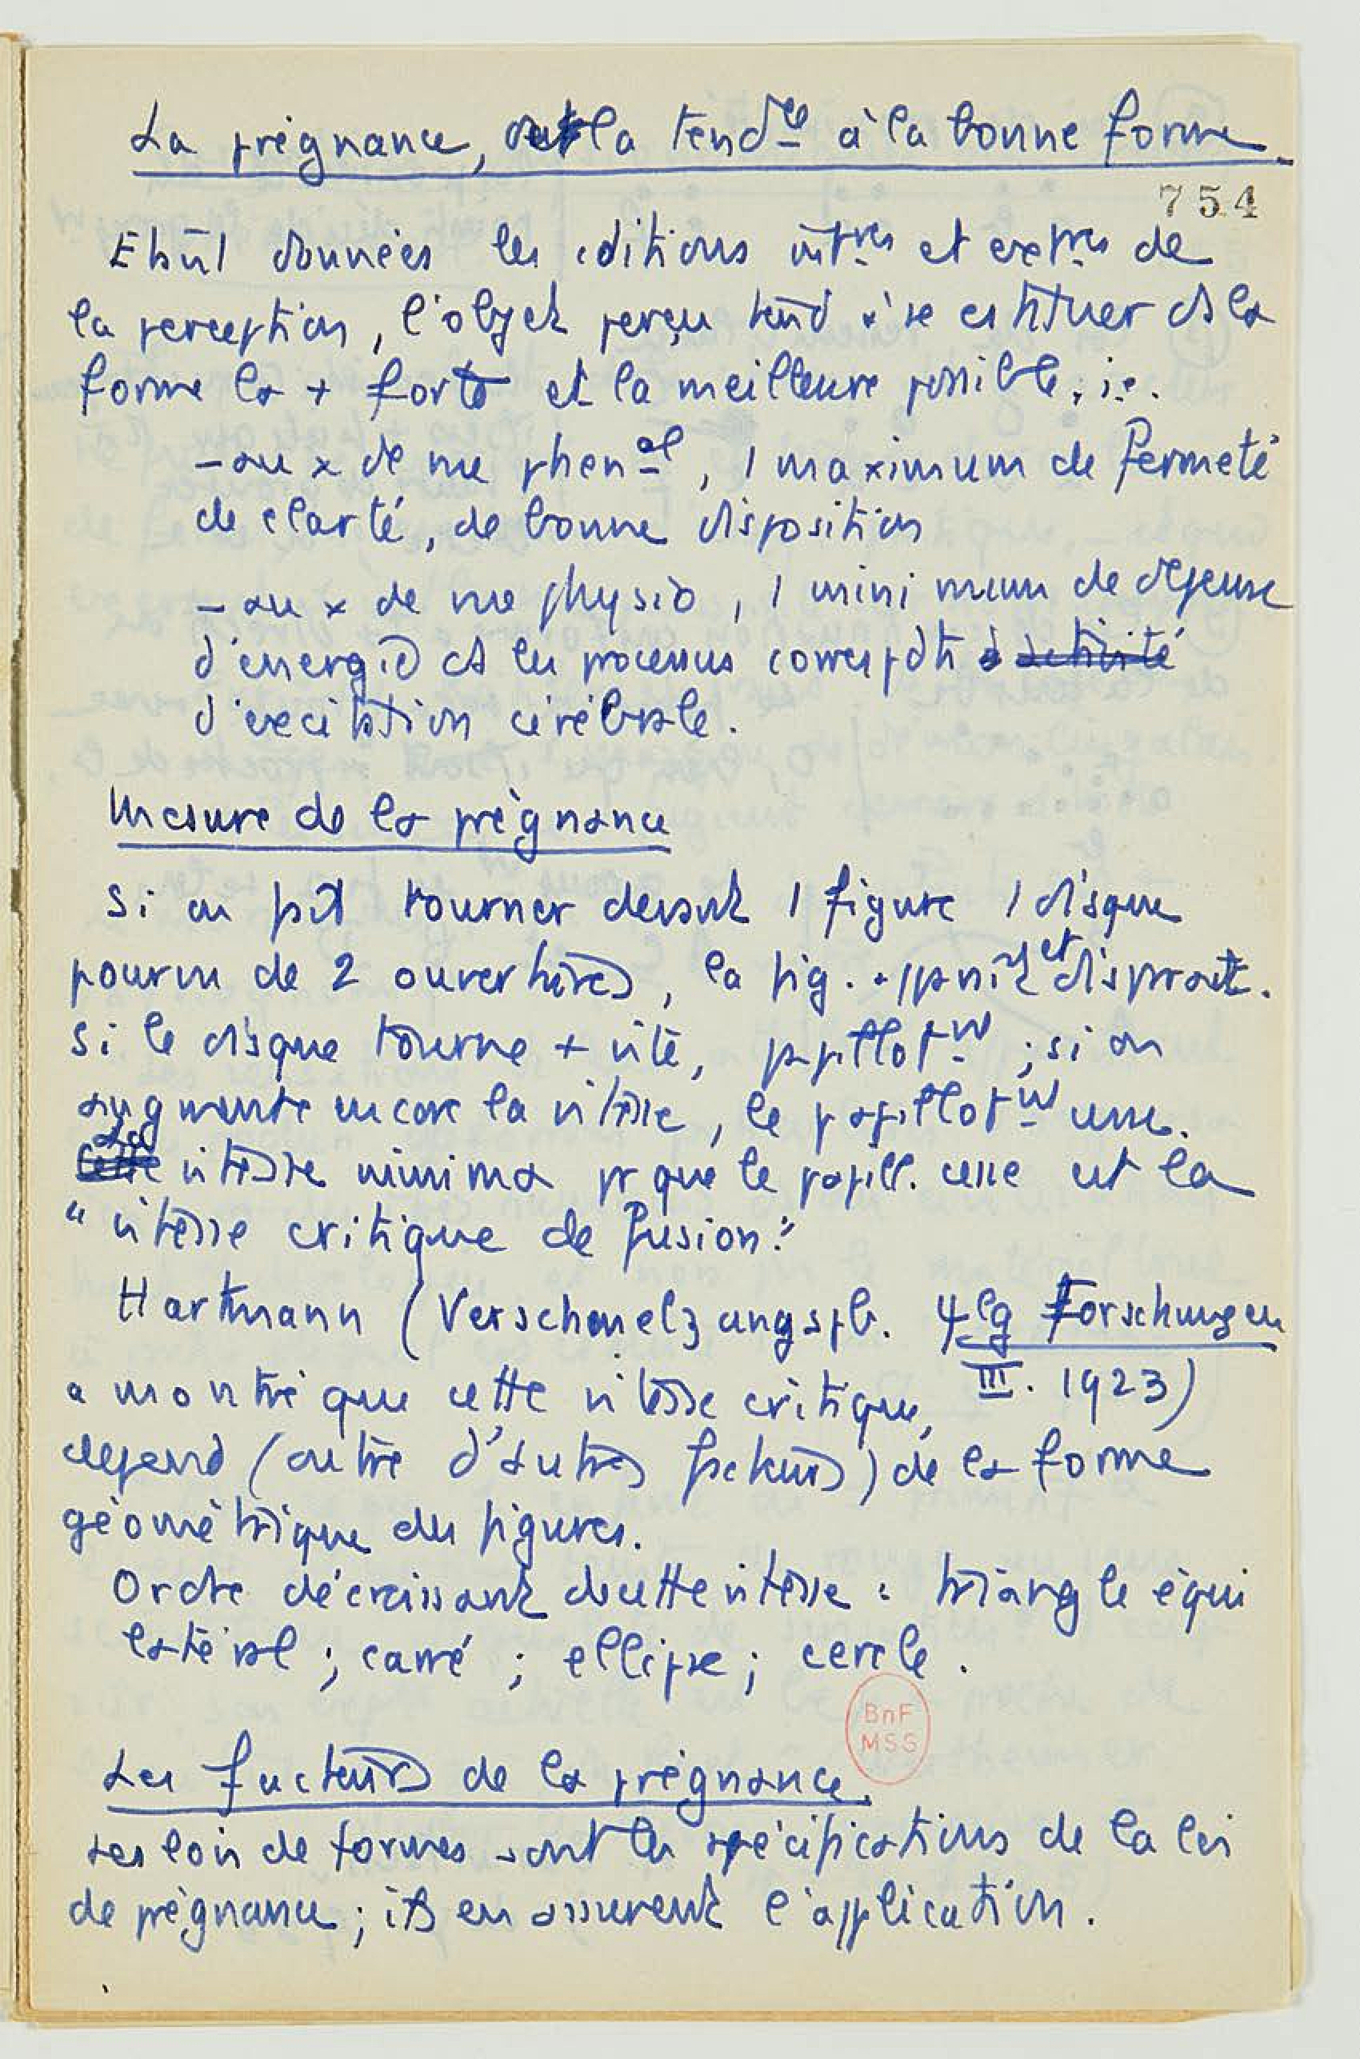 La prégnance, ou la tendce à la bonne forme.
754
Etant données les cditions intres et extres de
la perception, l'objet perçu tend à se cstituer ds la
forme la + forte et la meilleure possible, i.e.
- au x de vue phenal, 1 maximum de fermeté
de clarté, de bonne disposition
- au x de vue physio, 1 minimum de dépense
d'énergie ds les processus correspdts à activité
d'excitation cérébrale.
Mesure de la prégnance
Si on fait tourner devant 1 figure 1 disque
pourvu de 2 ouvertures, la fig. apparaît et disparaît.
Si le disque tourne + vite, papillott ; si on
augmente encore la vitesse, le papillott cesse.
La vitesse minima pr que le papill. cesse est la
"vitesse critique de fusion."
Hartmann (Verschmelzungspb. ψlg Forschungen
III. 1923)
a montré que cette vitesse critique,
dépend (outre d'autres facteurs) de la forme
géométrique des figures.
Ordre décroissant de cette vitesse : triangle équi
latéral ; carré ; ellipse ; cercle.
BnF
MSS
Les facteurs de la prégnance.
Les lois de formes sont les spécifications de la loi
de prégnance ; ils en assurent l'application.